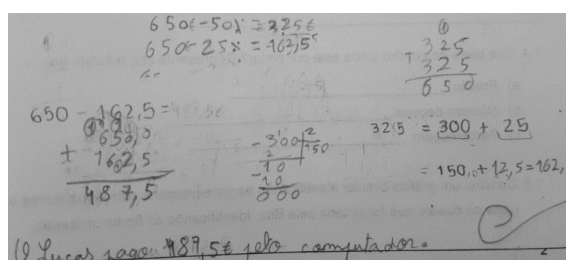 650€-50% = 325€
650€-25% = 162,5
325
+ 325
650
650 - 162,5 = 487,5€
650,0
+ 162,5
487,5
- 300 2
2 150
10
- 10
000
325 = 300 + 25
= 150,0 + 12,5 = 162,
R Lucas pagou 487,5€ pelo computador.